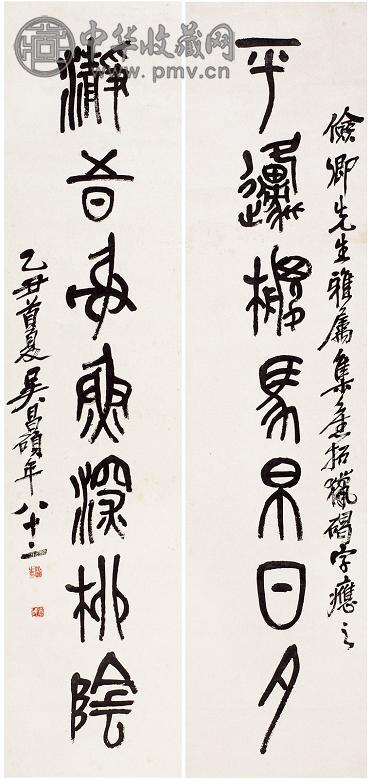 中华收藏网
www.pmv.cn
儉卿先生雅屬集舊拓獵碣字應之
平邍馬日夕
瀞魚深柳陰
乙丑首夏吳昌碩年八十二